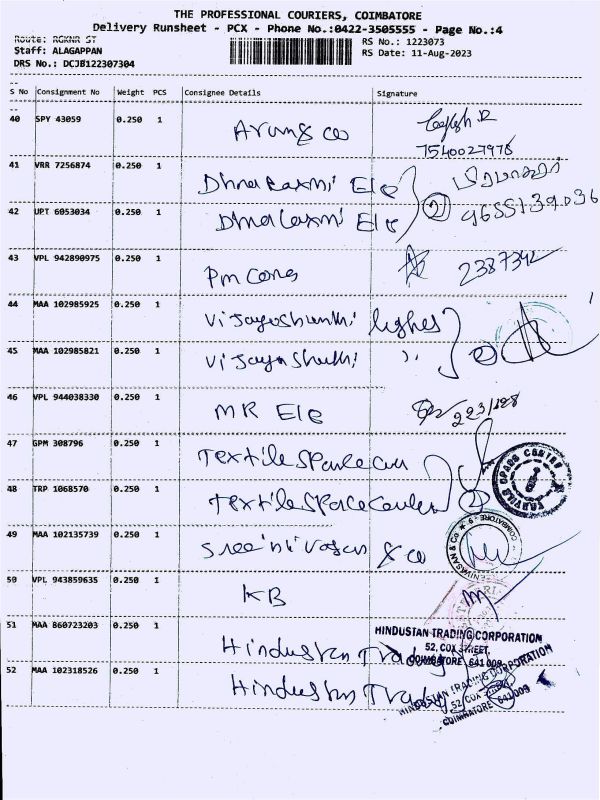 THE PROFESSIONAL COURIERS, COIMBATORE
Delivery Runsheet - PCX - Phone No.:0422-3505555 - Page No.:4
Route: RGKNR ST
RS No.: 1223073
Staff: ALAGAPPAN
RS Date: 11-Aug-2023
DRS No.: DCJB122307304
S No Consignment No Weight PCS Consignee Details Signature
40 SPY 43059 0.250 1 Arun & co
7540027978
41 VRR 7256874 0.250 1 Dhna Laxmi Ele
42 UPT 6053034 0.250 1 Dhna Laxmi Ele 2 9655139036
43 VPL 942890975 0.250 1 Pm Cones 2387342
44 MAA 102985925 0.250 1 Vijayashanthi
45 MAA 102985821 0.250 1 Vijayashanthi 2
46 VPL 944038330 0.250 1 MR Ele
47 GPM 308796 0.250 1 Textile
TEXTILE SPARE CENTRE
48 TRP 1068570 0.250 1 Textile 2
49 MAA 102135739 0.250 1 Sreenivasan & co
COIMBATORE - 9
50 VPL 943859635 0.250 1 KB
51 MAA 860723203 0.250 1 Hindustan Trading
HINDUSTAN TRADING CORPORATION
52, COX STREET,
COIMBATORE 641 009
52 MAA 102318526 0.250 1 Hindustan Trading
HINDUSTAN TRADING CORPORATION
52, COX STREET,
COIMBATORE 641 009